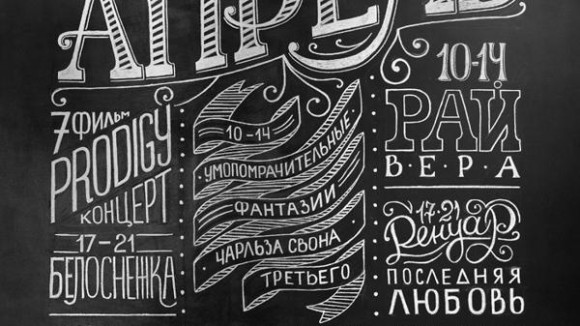 АПРЕЛЬ
7 ФИЛЬМ
PRODIGY
КОНЦЕРТ
17-21
БЕЛОСНЕЖКА
10-14
УМОПОМРАЧИТЕЛЬНЫЕ
ФАНТАЗИИ
ЧАРЛЬЗА СВОНА
ТРЕТЬЕГО
10-14
РАЙ
В·Е·Р·А
17-21
Ренуар
ПОСЛЕДНЯЯ
ЛЮБОВЬ